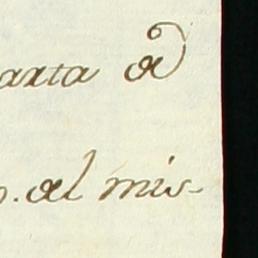 arta de
. al mis-